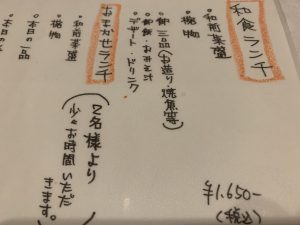 和食ランチ
・和前菜盛
・椀物
・御三品(お造り・焼魚等)
・御飯・お味噌汁
・デザート・ドリンク
¥1,650-
(税込)
おまかせランチ
(2名様より
少々お時間いただ
きます。)
・和前菜盛
・椀物
・本日の一品
・本日の